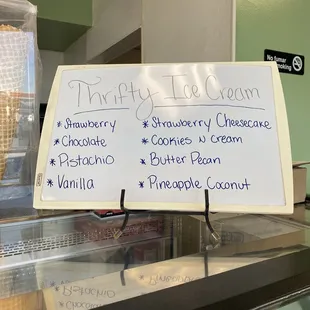 Thrifty Ice Cream
* Strawberry
* Chocolate
* Pistachio
* Vanilla
* Strawberry Cheesecake
* Cookies N Cream
* Butter Pecan
* Pineapple Coconut
No fumar
smoking
* Pistachio
* Chocolate
* Strawberry